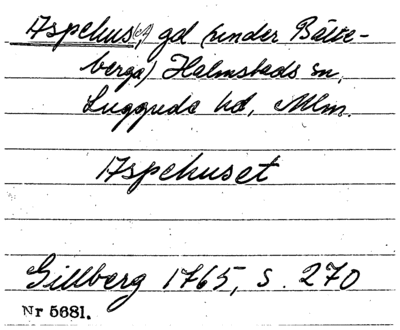 Aspehus(et), gd (under Bälte-
berga) Halmstads sn,
Luggude hd, Mlm.
Aspehuset
Gillberg 1765, s. 270
Nr 5681.